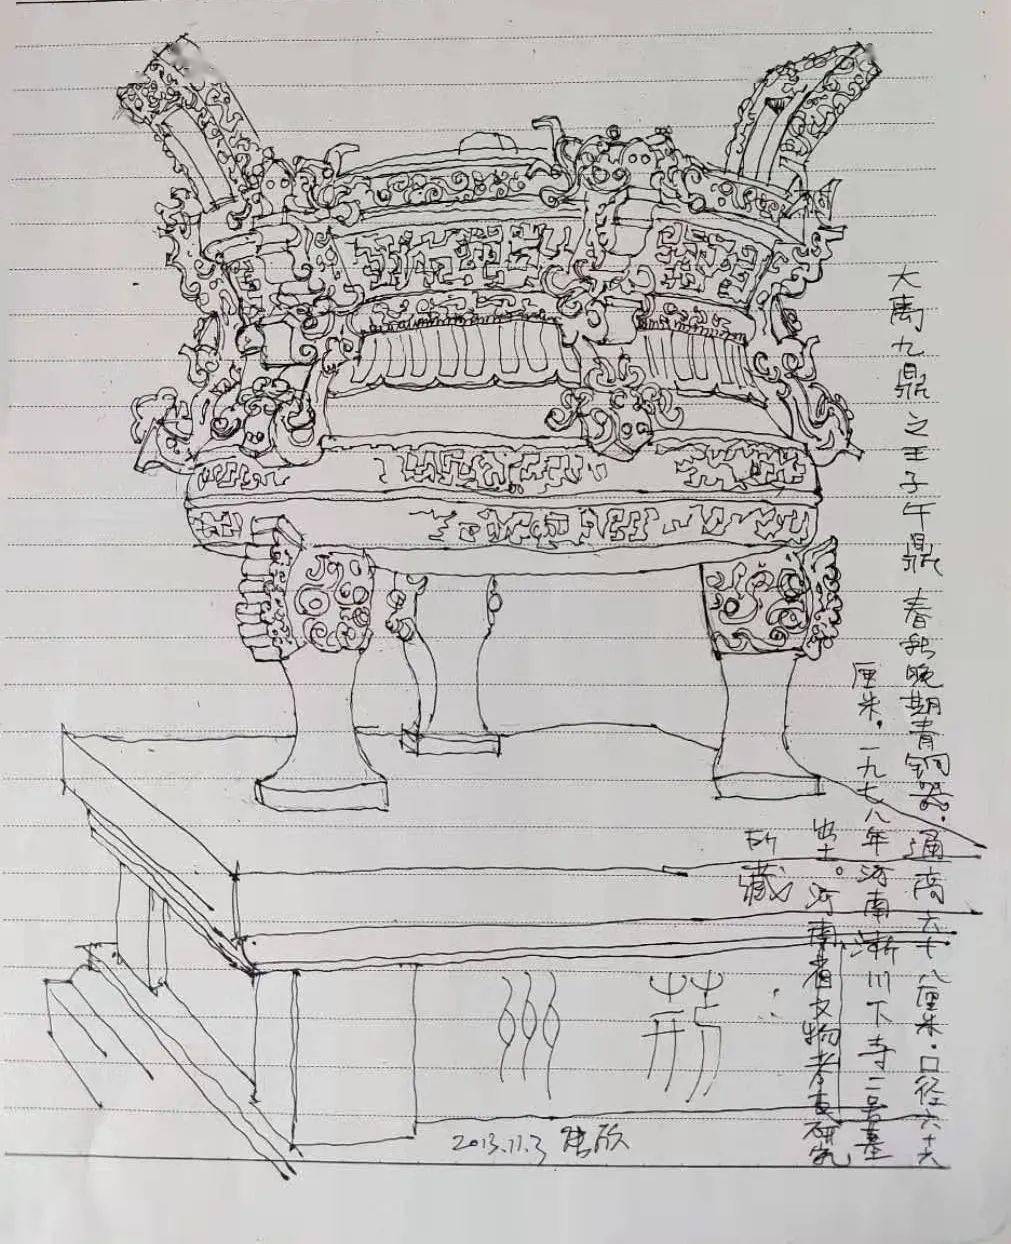 大禹九鼎之王子午鼎 春秋晚期青铜器。通高六十八厘米。口径六十六
厘米。一九七八年河南淅川下寺二号墓
出土。河南省文物考古研究
所藏
荆州
2013.11.3